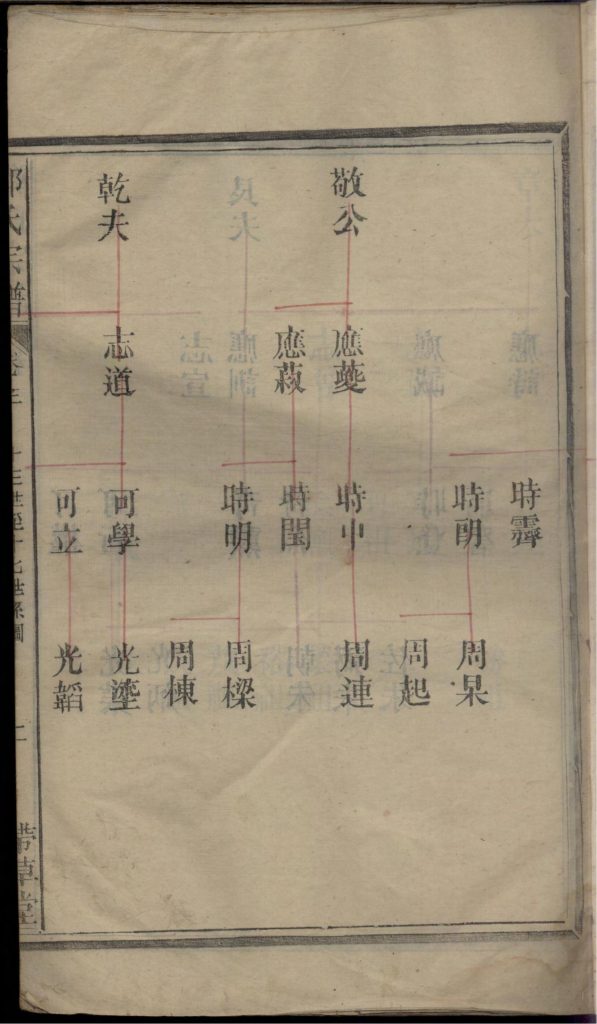 敬公
乾夫
應夔
應蔌
志道
時霽
時朙
時中
時閏
時明
可學
可立
周杲
周起
周連
周樑
周棟
光塗
光韜
氏宗譜
卷三
十三世至十七世系圖
二
帶草堂